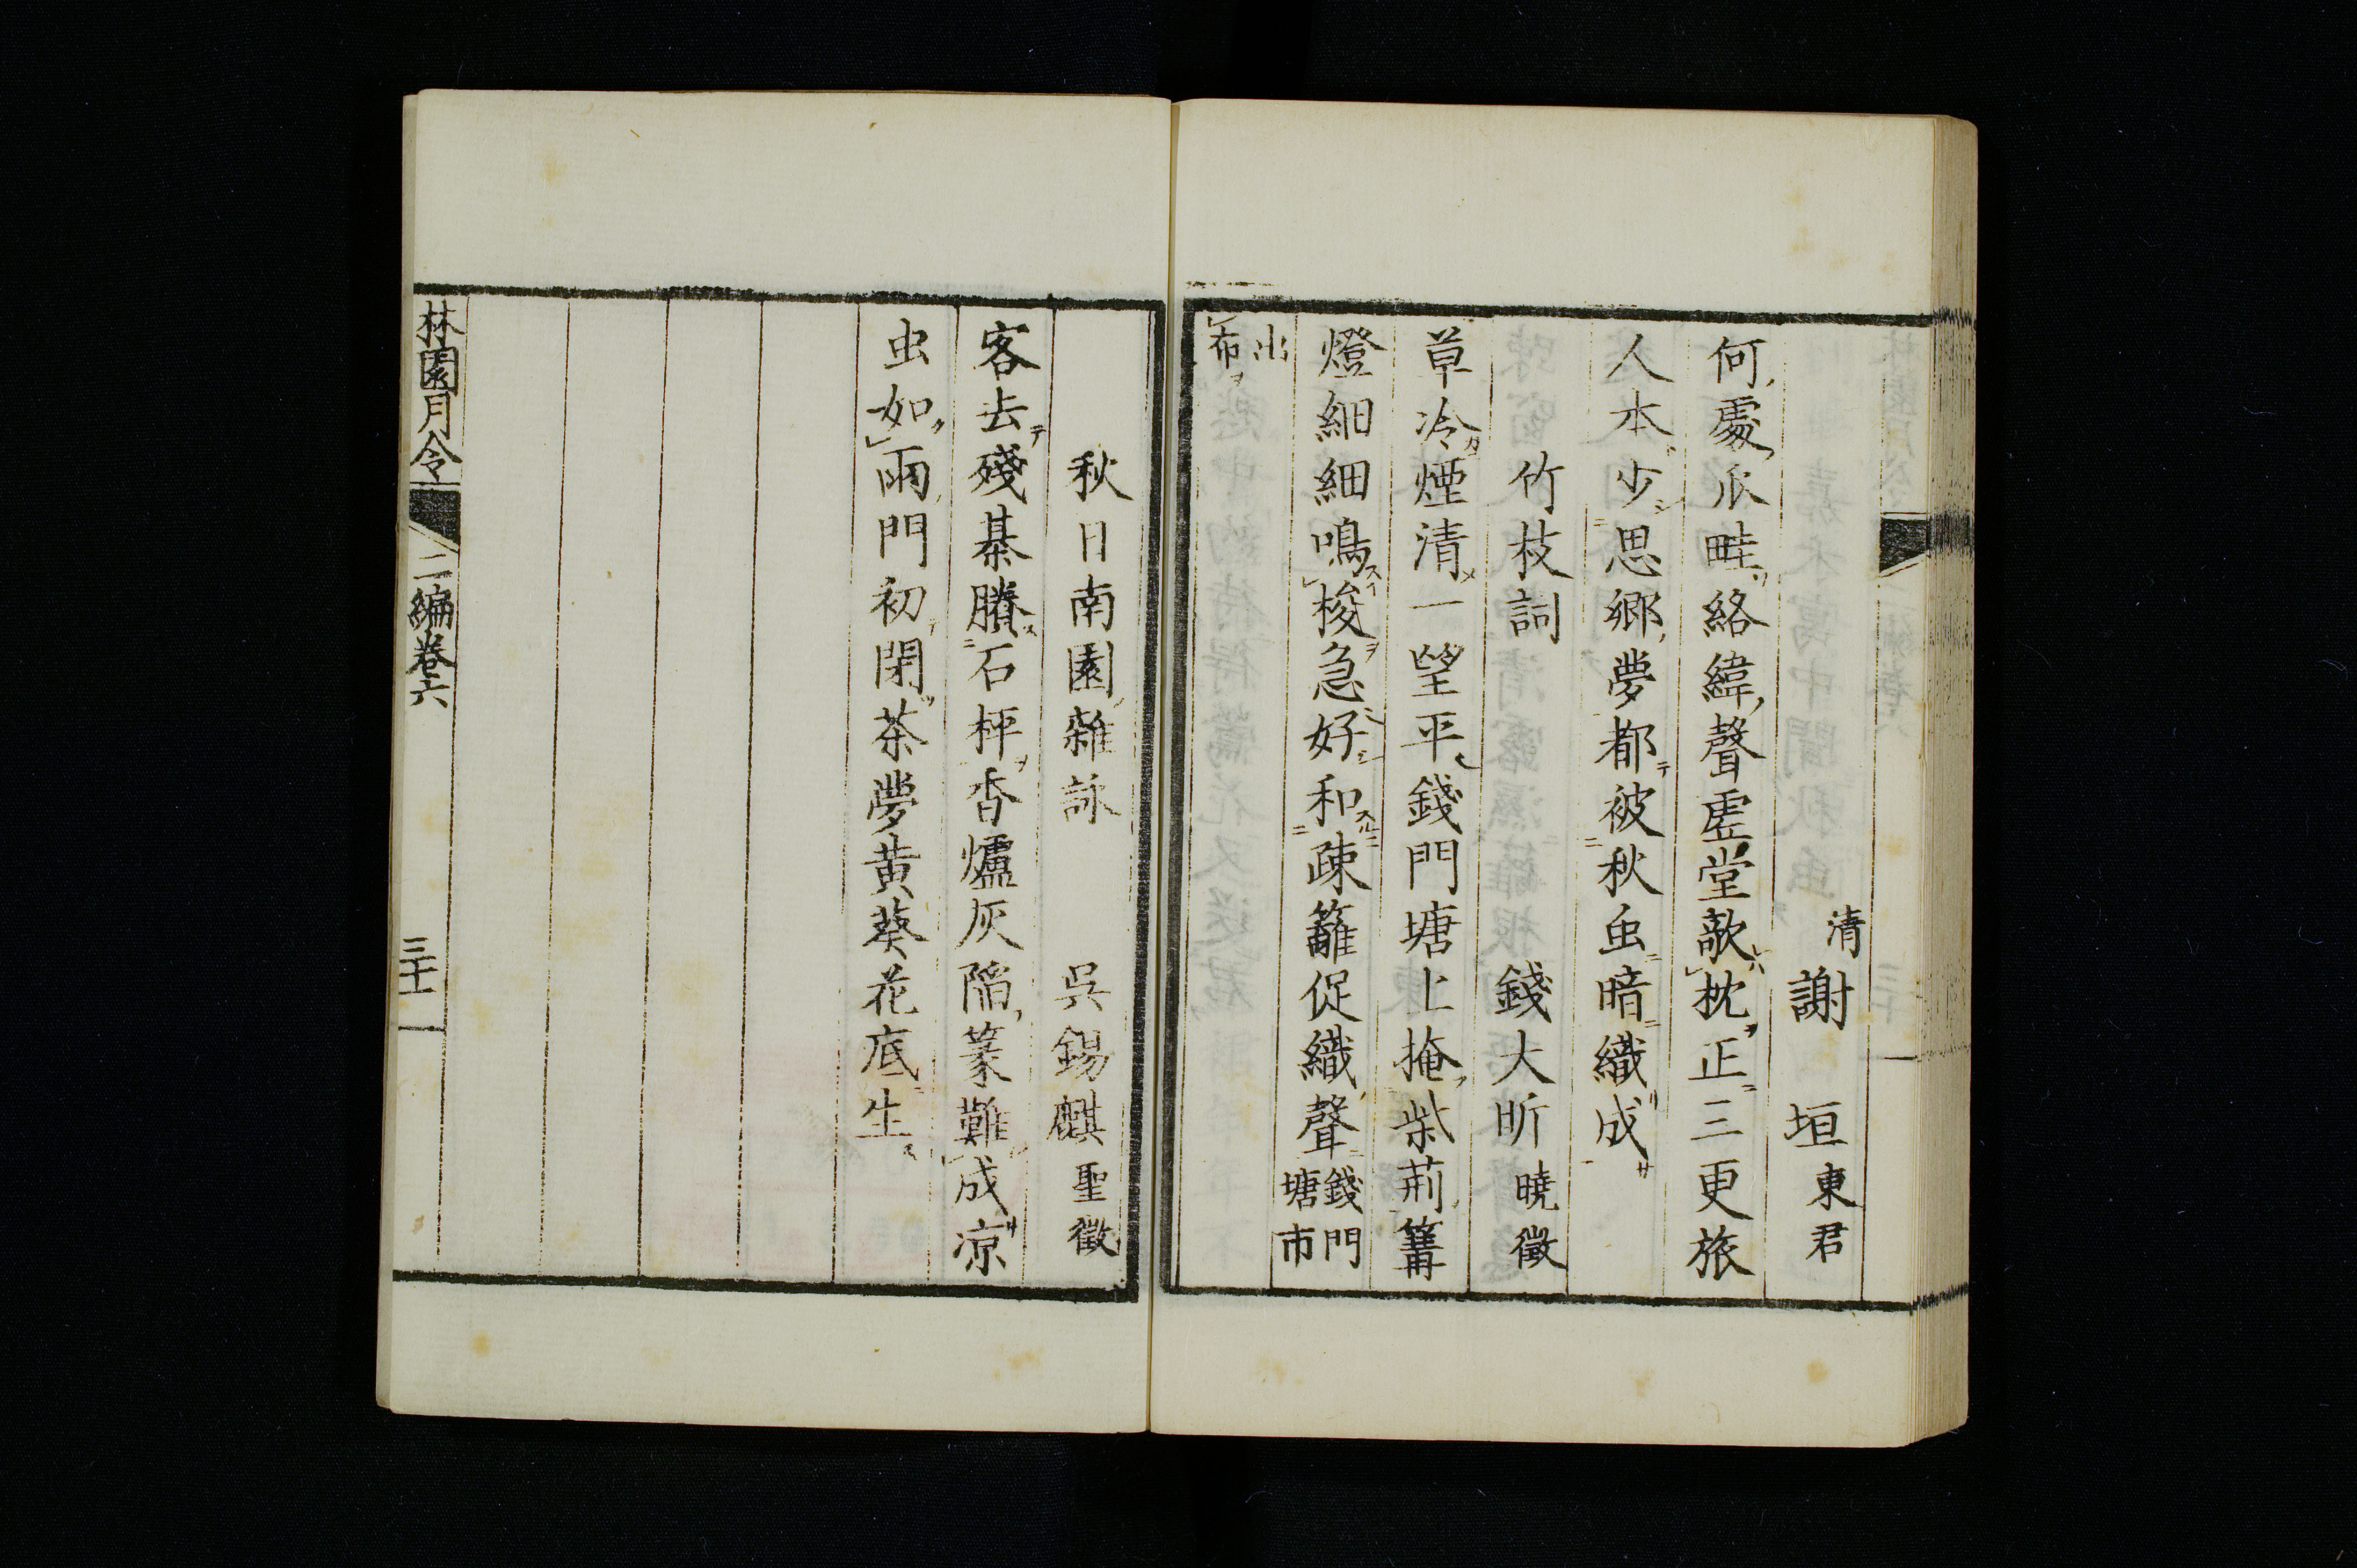 清謝垣東君
何處瓜畦絡緯聲虛堂敧枕正三更旅
人本少思鄉夢都被秋虫暗織成
竹枝詞 錢大昕曉徵
草冷煙清一望平錢門塘上掩柴荊篝
燈細細鳴梭急好和疎籬促織聲錢門塘市
出布
秋日南園雜詠 吳錫麒聖徵
客去殘棊賸石枰香爐灰陷篆難成涼
虫如雨門初閉茶夢黃葵花底生
林園月令 二編卷六 三十一